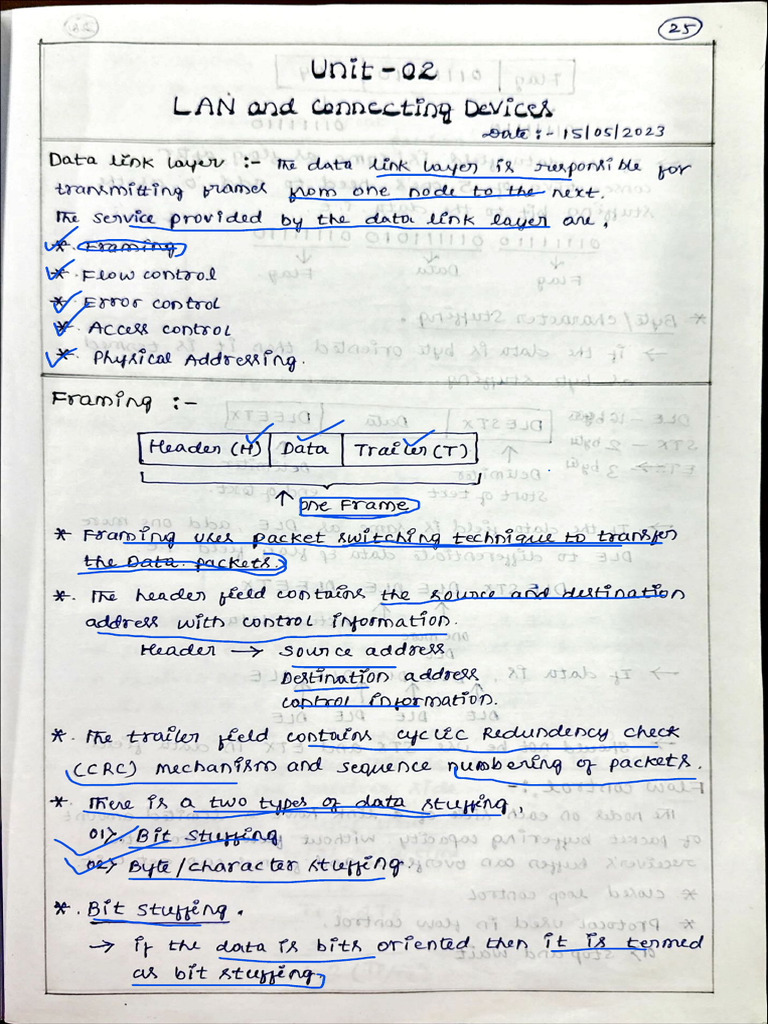 25
Unit-02
LAN and connecting Devices
Date :- 15/05/2023
Data link layer :- The data link layer is responsible for
transmitting frames from one node to the next.
The service provided by the data link layer are,
* Framing
* Flow control
* Error control
* Access control
* Physical Addressing.
Framing :-
Header (H) Data Trailer (T)
one Frame
* Framing uses packet switching technique to transfer
the Data packets.
* The header field contains the source and destination
address with control information.
Header → source address
Destination address
control information.
* The trailer field contains cyclic Redundency check
(CRC) mechanism and sequence numbering of packets.
* There is a two types of data stuffing,
01) Bit stuffing
02) Byte/character stuffing.
* Bit stuffing.
→ if the data is bits oriented then it is termed
as bit stuffing.